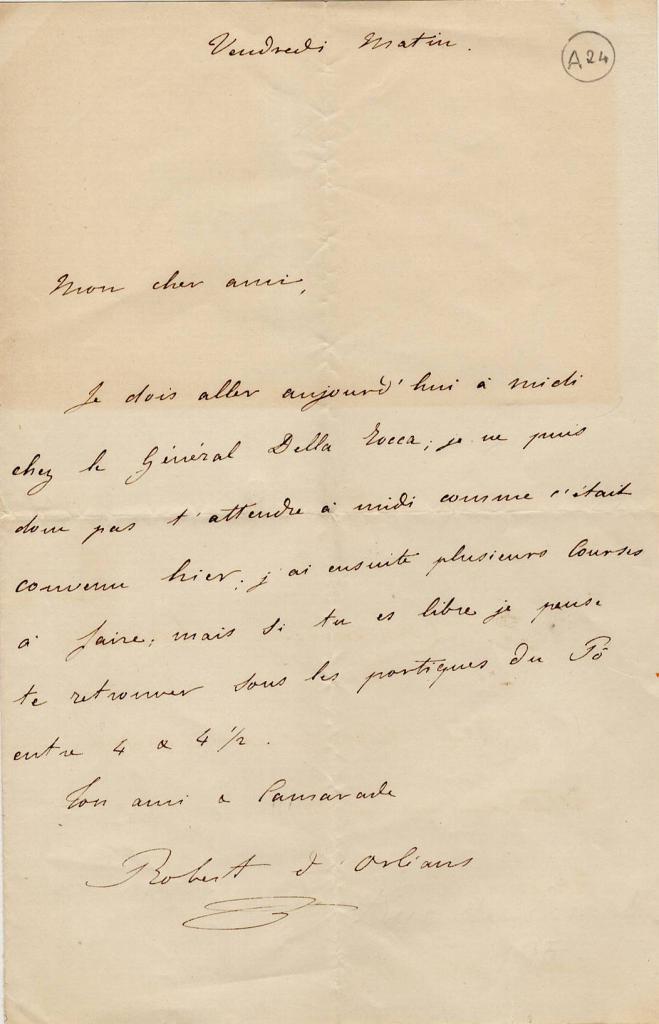 Vendredi Matin.
A24
Mon cher ami,
Je dois aller aujourd'hui à midi
chez le Général Della Rocca; je ne puis
donc pas t'attendre à midi comme c'était
convenu hier; j'ai ensuite plusieurs courses
à faire; mais si tu es libre je pense
te retrouver sous les portiques du Pô
entre 4 & 4 1/2.
Ton ami & Camarade
Robert d'Orléans